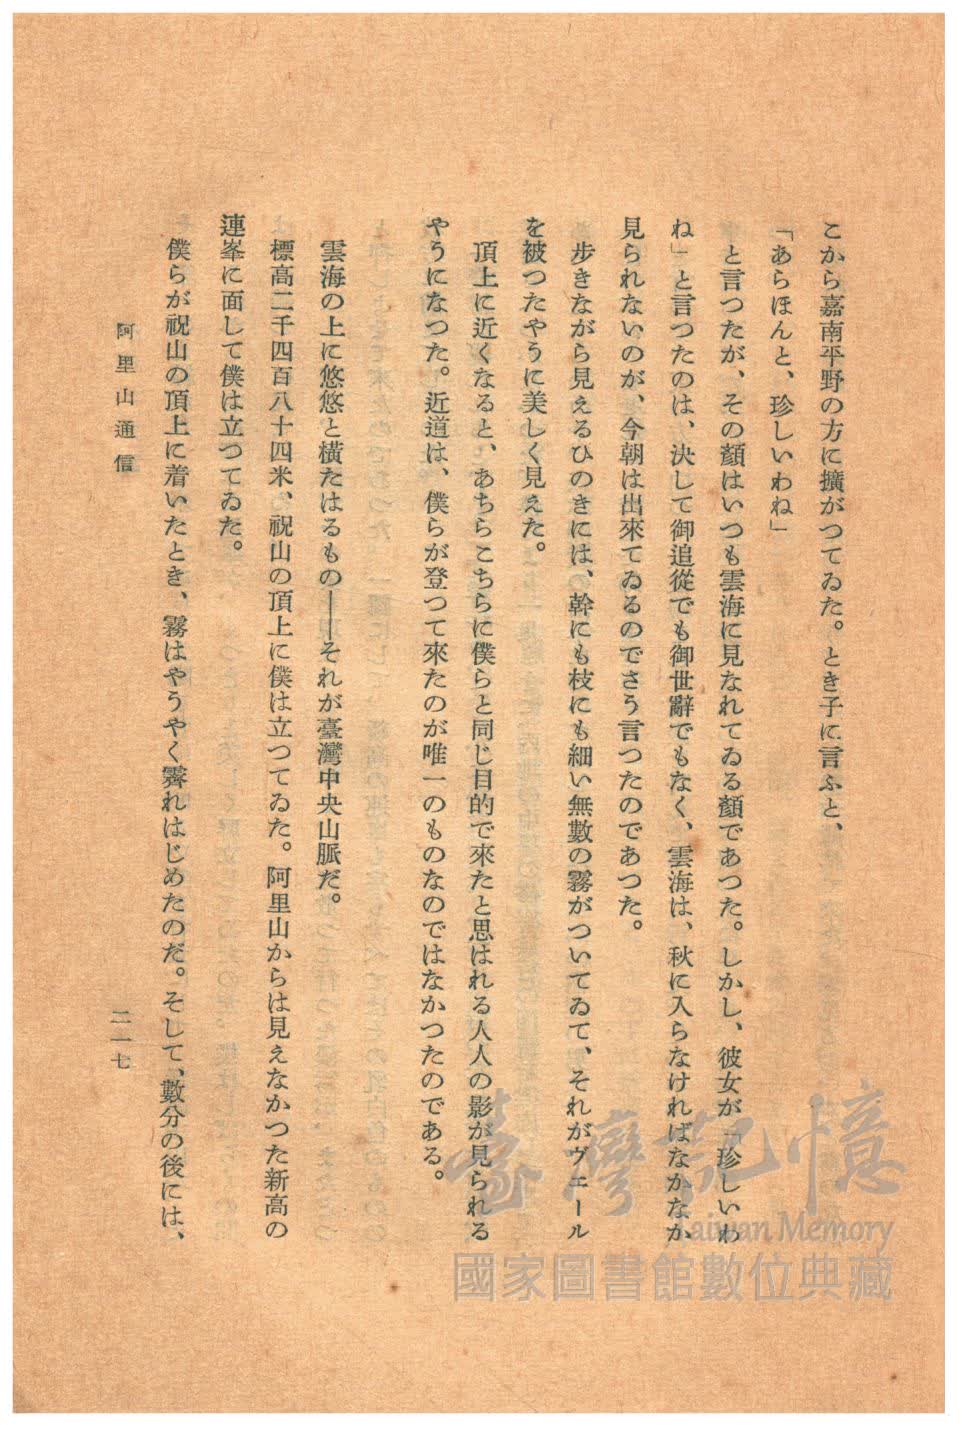 こから嘉南平野の方に擴がつてゐた。とき子に言ふと、
「あらほんと、珍しいわね」
と言つたが、その顏はいつも雲海に見なれてゐる顏であつた。しかし、彼女が「珍しいわ
ね」と言つたのは、決して御追從でも御世辭でもなく、雲海は、秋に入らなければなかなか
見られないのが、今朝は出來てゐるのでさう言つたのであつた。
歩きながら見えるひのきには、幹にも枝にも細い無數の霧がついてゐて、それがヴェール
を被つたやうに美しく見えた。
頂上に近くなると、あちらこちらに僕らと同じ目的で來たと思はれる人人の影が見られる
やうになつた。近道は、僕らが登つて來たのが唯一のものなのではなかつたのである。
雲海の上に悠悠と橫たはるもの——それが臺灣中央山脈だ。
標高二千四百八十四米、祝山の頂上に僕は立つてゐた。阿里山からは見えなかつた新高の
連峯に面して僕は立つてゐた。
僕らが祝山の頂上に着いたとき、霧はやうやく霽れはじめたのだ。そして、數分の後には、
阿里山通信
二一七
臺灣記憶
Taiwan Memory
國家圖書館數位典藏